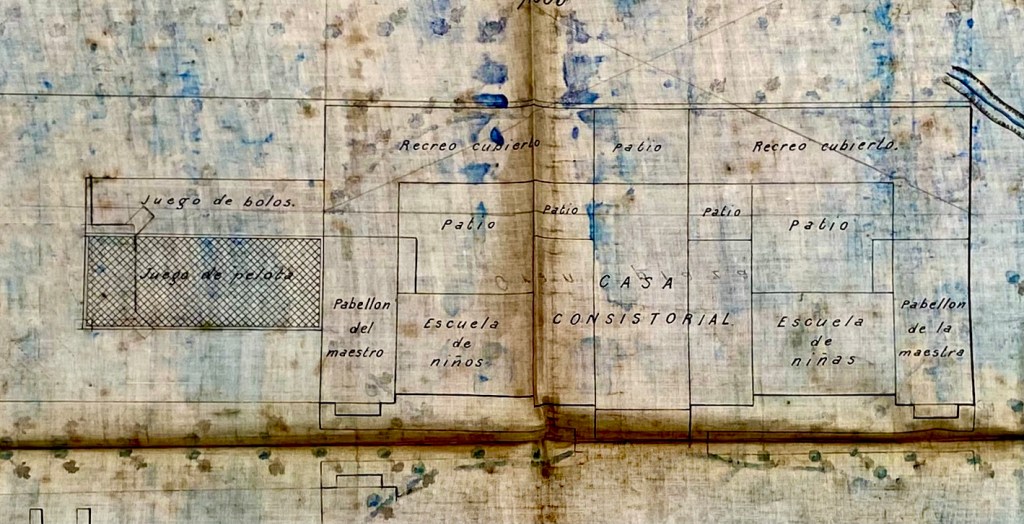 Recreo cubierto
Patio
Recreo cubierto.
Juego de bolos.
Patio
Patio
Patio
Patio
Juego de pelota
CASA
CONSISTORIAL
Pabellon
del
maestro
Escuela
de
niños
Escuela
de
niñas
Pabellon
de la
maestra